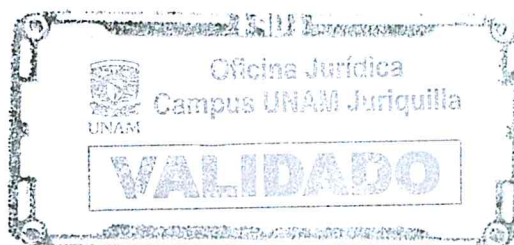 Oficina Jurídica
Campus UNAM Juriquilla
UNAM
VALIDADO